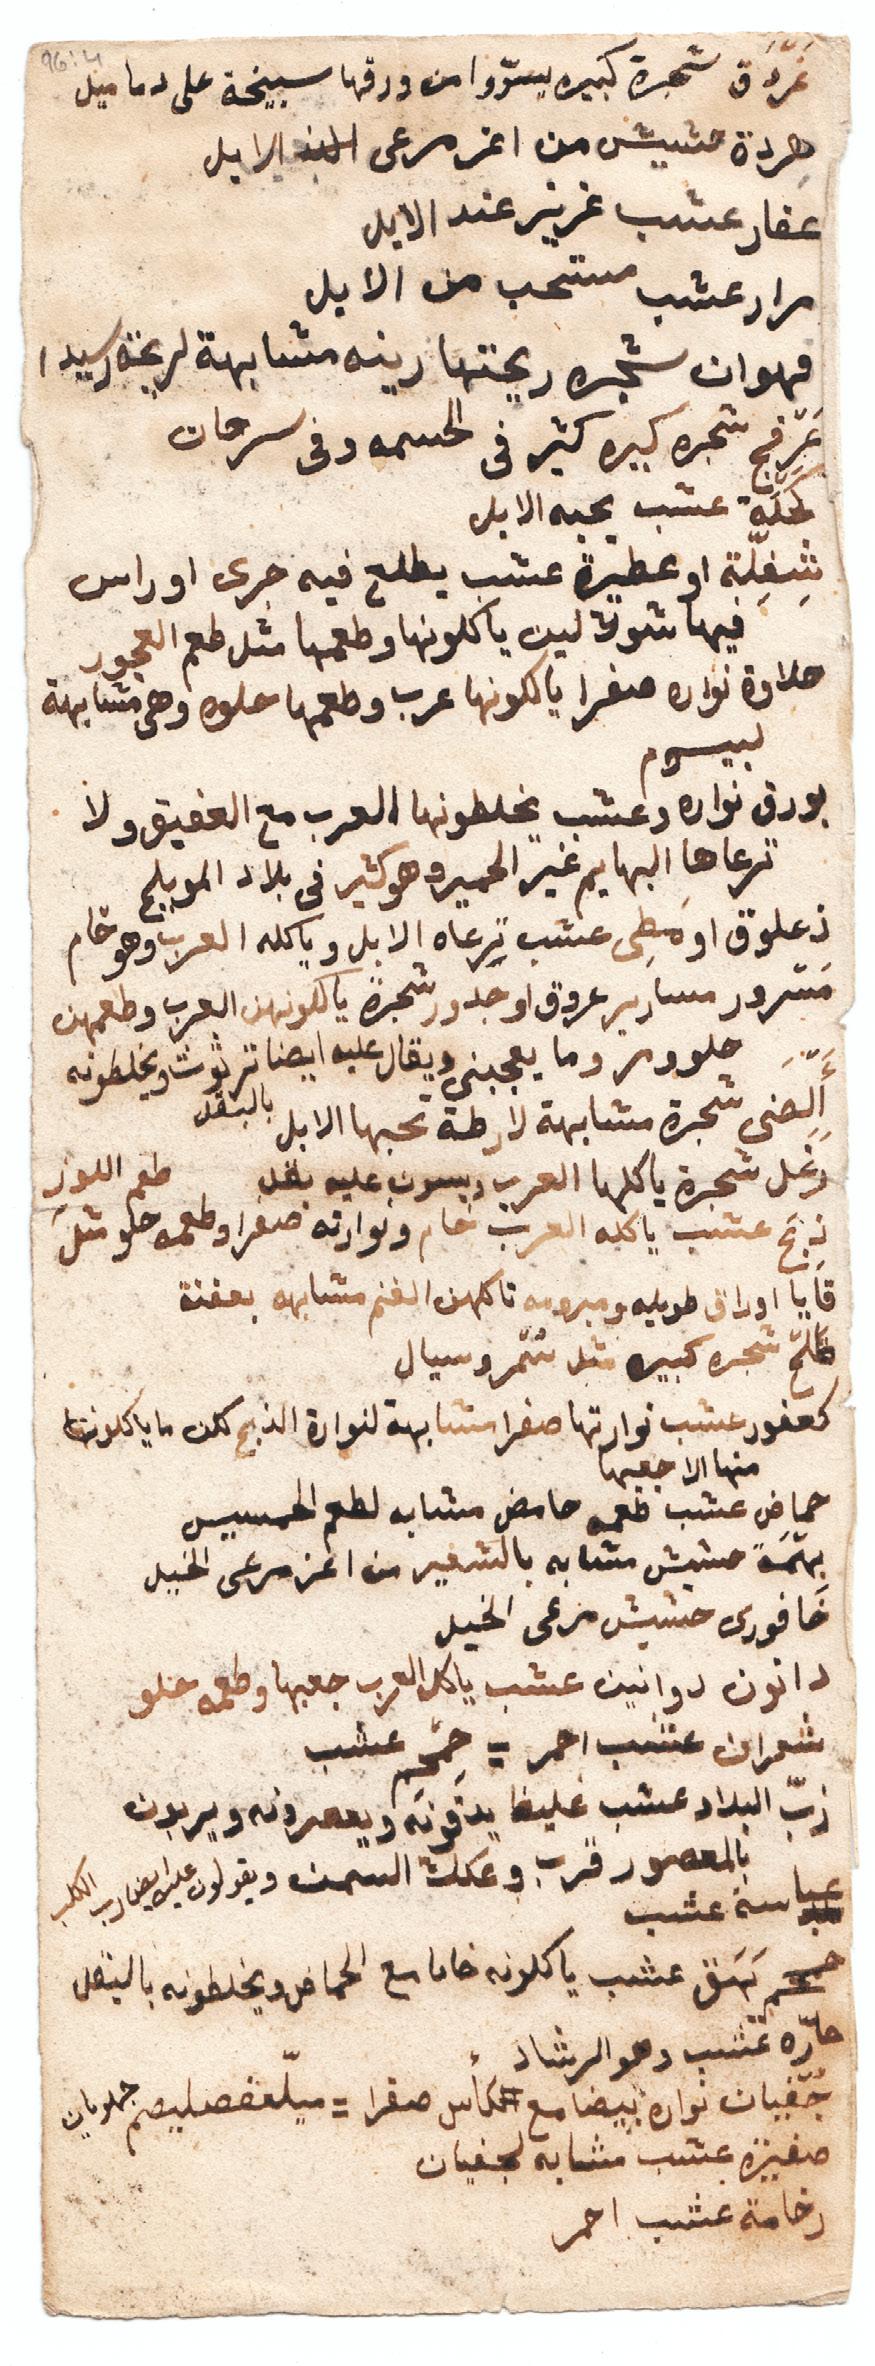 غَرْدَق شجرة كبيره يسوّوا من ورقها سبيخة على دماميل
هِردة حشيش من اعز مرعى الابل
عفار عشب عزيز عند الابل
مرار عشب مستحب من الابل
قهوان شجره ريحتها زينه مشابهة لريحة
عَرْفج شجره كبيره كثير فى الحسمه وفى سرحان
كَحَلَة عشب يحبه الابل
شِفِلّة او عطيرة عشب يطلع فيه جرى او راس
فيها شوك لين ياكلونها وطعمها مثل طعم العجور
حلاوة نواره صفرا ياكلونها عرب وطعمها حلوه وهى مشابهة
لبيسوم
بورق نواره وعشب يخلطونها العرب مع العفيق ولا
ترعاها البهايم غير الحمير وهو كثير فى بلاد المويلح
ذعلوق او مَطِى عشب ترعاه الابل وياكله العرب وهو خام
مَسْرور مسارير عروق او جدور شجرة ياكلونهن العرب وطعمهن
حلو ومر وما يعجبنى ويقال عليه ايضا تربوث ويخلطونه
بالبقل
أَلَضَى شجرة مشابهة لارطة تحبها الابل
رَغَل شجرة ياكلها العرب ويسون عليه بقل
طعم اللوز
ذِبَح عشب ياكله العرب خام ونوارته صفرا وطعمه حلو مثل
قَايا اوراق طويله ومبرومه تاكلهن الغنم مشابهه بعفنة
طَلْح شجره كبيره مثل سَمُر وسيال
كعفور عشب نوارتها صفرا مشابهة لنوارة الذبح لكن ما ياكلونها
منها الا جعبها
حماض عشب طعمه حامض مشابه لطعم الحسيس
بهْمَة حشيش مشابه بالشعير من اعز مرعى الخيل
خَافورى حشيش مرعى الخيل
دانون دوانين عشب ياكل العرب جعبها وطعمه حلو
شعران عشب احمر = حِمْحِم عشب
زبّ البلاد عشب غليظ يدقّونَه ويعصرونه ويربون
بالمعصور قرب وعكك السمن ويقولون عليه ايضا زب الكلب
عباسة عشب
بَهَق عشب ياكلونه خاما مع الحماض ويخلطونه بالبقل
حارّه عشب وهو الرشاد
جُفّيان نواره بيضا مع كأس صفرا =
صفيرة عشب مشابه لجفيان
رخامة عشب احمر